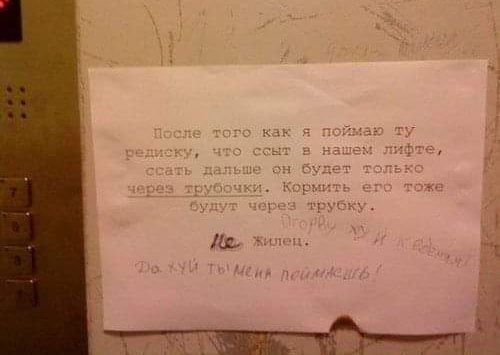 После того как я поймаю ту
редиску, что ссыт в нашем лифте,
ссать дальше он будет только
через трубочки. Кормить его тоже
будут через трубку.
Оторву ху й к ебеням!
Не Жилец.
Да хуй ты меня поймаешь!
7